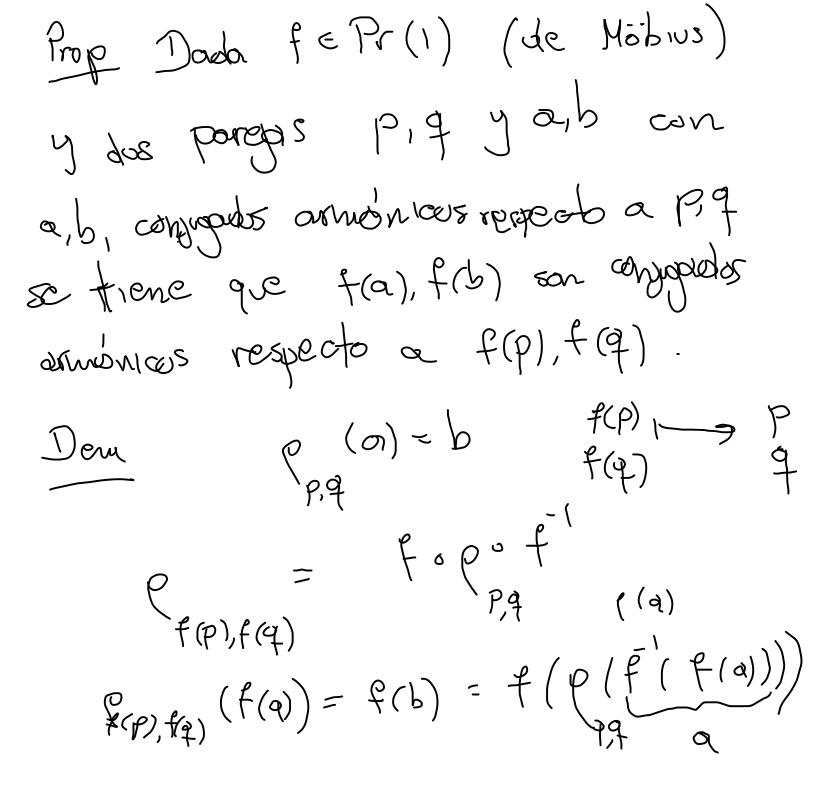 Prop Dada f ∈ Pr(1) (de Möbius)
y dos parejas p, q y a, b con
a, b, conjugados armónicos respecto a p, q
se tiene que f(a), f(b) son conjugados
armónicos respecto a f(p), f(q).
Dem ρ_{p,q} (a) = b f(p) ↦ p
f(q) q
ρ_{f(p), f(q)} = f ∘ ρ_{p,q} ∘ f^{-1}
ρ(a)
ρ_{f(p), f(q)} (f(a)) = f(b) = f(ρ_{p,q}(f^{-1}(f(a))))
a